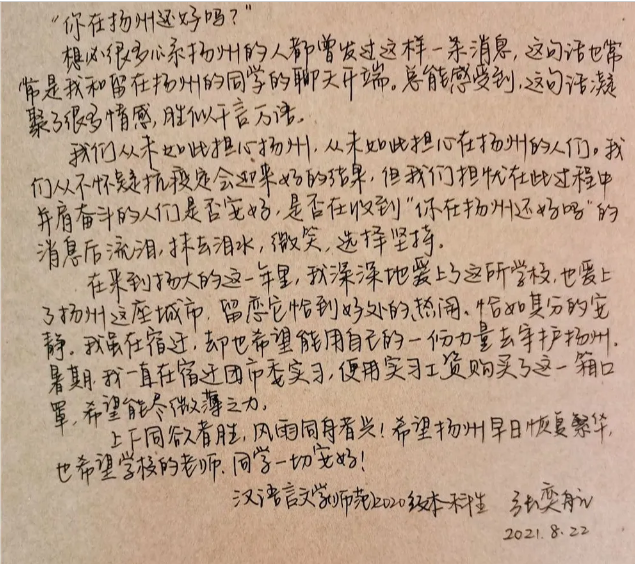 “你在扬州还好吗？”
想必很多心系扬州的人都曾发过这样一条消息，这句话也常
常是我和留在扬州的同学的聊天开端。总能感受到，这句话凝
聚了很多情感，胜似千言万语。
我们从未如此担心扬州，从未如此担心在扬州的人们。我
们从不怀疑抗疫定会迎来好的结果，但我们担忧在此过程中
并肩奋斗的人们是否安好，是否在收到“你在扬州还好吗”的
消息后流泪，抹去泪水，微笑，选择坚持。
在来到扬大的这一年里，我深深地爱上了这所学校，也爱上
了扬州这座城市，留恋它恰到好处的热闹、恰如其分的安
静。我虽在宿迁，却也希望能用自己的一份力量去守护扬州。
暑期，我一直在宿迁团市委实习，便用实习工资购买了这一箱口
罩，希望能尽微薄之力。
上下同欲者胜，风雨同舟者兴！希望扬州早日恢复繁华，
也希望学校的老师、同学一切安好！
汉语言文学(师范)2020级本科生 张奕
2021.8.22